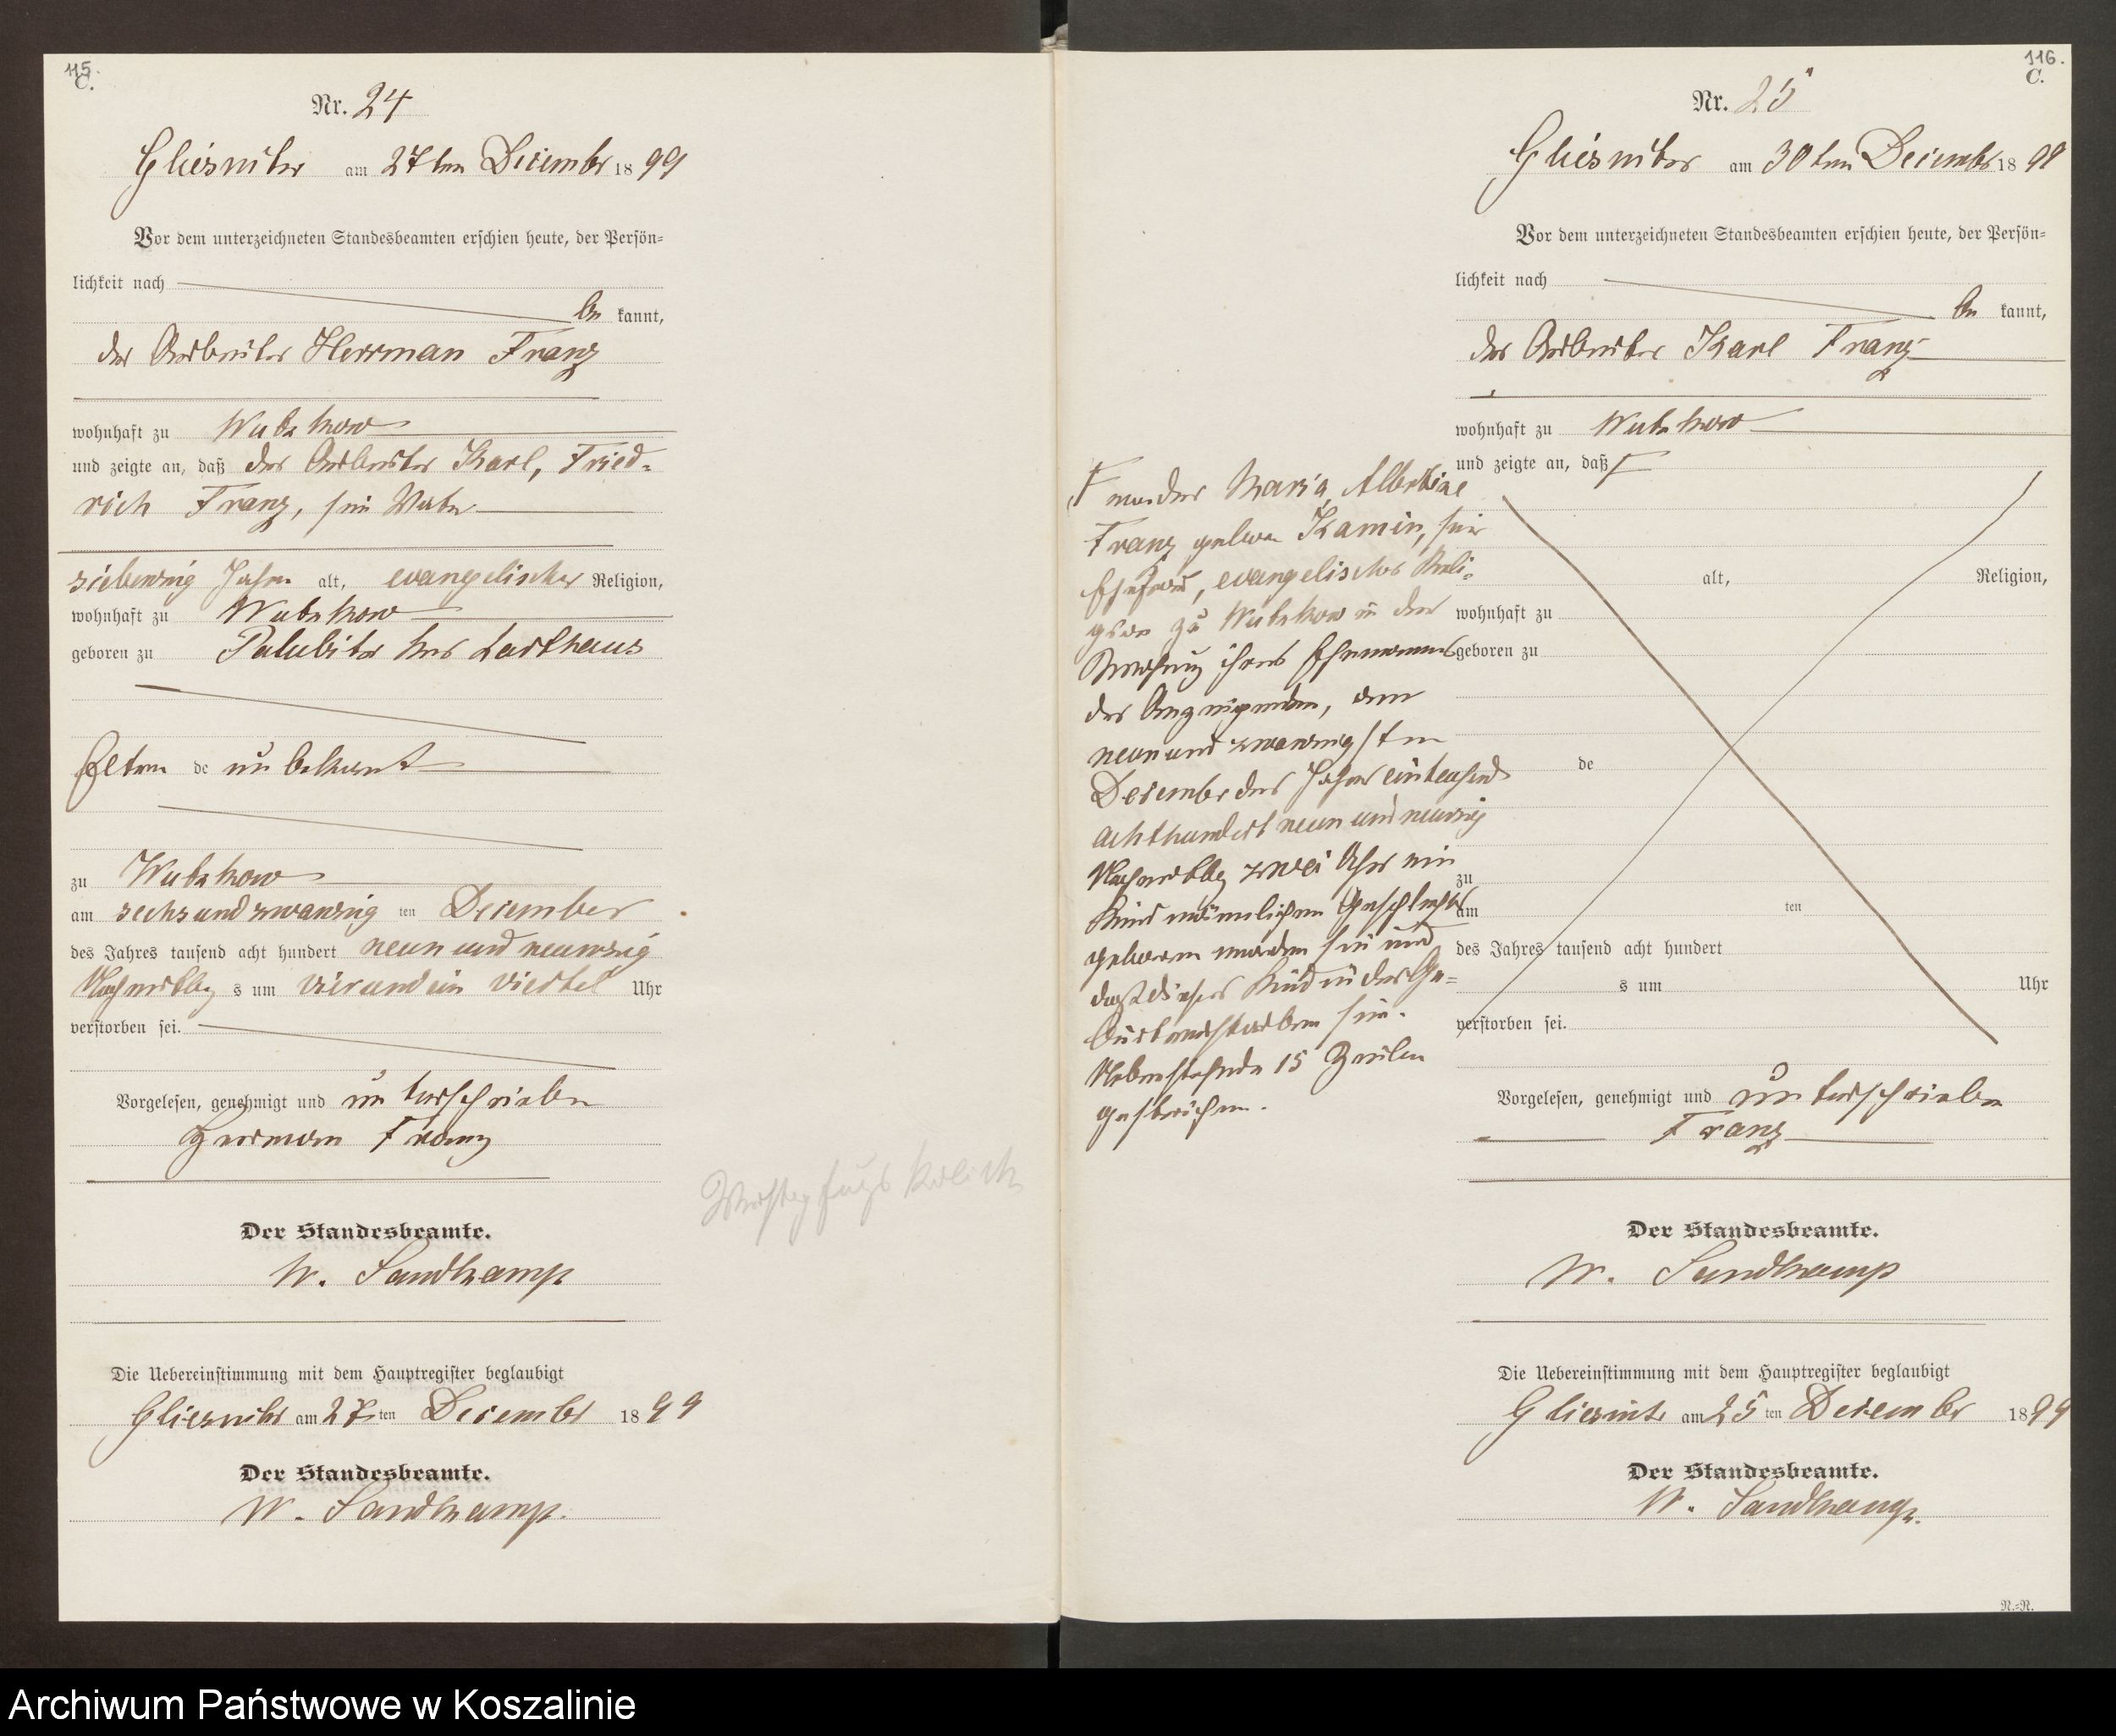 115.
C.
Nr. 24
Gliesnitz am 27ten Decembr 1899
Vor dem unterzeichneten Standesbeamten erschien heute, der Persön=
lichkeit nach
be kannt,
der Arbeiter Herrman Franz
wohnhaft zu Wutzkow
und zeigte an, daß der Arbeiter Karl, Fried-
rich Franz, sein Vater
siebenzig Jahre alt, evangelischer Religion,
wohnhaft zu Wutzkow
geboren zu Palubitz Kreis Carthaus
Eltern de unbekannt
zu Wutzkow
am sechsundzwanzig ten December
des Jahres tausend acht hundert neun und neunzig
Nachmittag s um vier und ein Viertel Uhr
verstorben sei.
Vorgelesen, genehmigt und unterschrieben
Herrman Franz
Der Standesbeamte.
W. Sandkamp
Die Uebereinstimmung mit dem Hauptregister beglaubigt
Gliesnitz am 27ten Decembr 1899
Der Standesbeamte.
W. Sandkamp.
116.
C.
Nr. 25
Gliesnitz am 30ten Decembr 1899
Vor dem unterzeichneten Standesbeamten erschien heute, der Persön=
lichkeit nach
be kannt,
der Arbeiter Karl Franz
wohnhaft zu Wutzkow
und zeigte an, daß F
F von der Maria, Albertine
Franz geborne Kamin, seine
Ehefrau, evangelischer Reli-
gion zu Wutzkow in der
Wohnung ihres Ehemannes
des Anzeigenden, am
neun und zwanzigsten
December des Jahres eintausend
achthundert neun und neunzig
Nachmittag zwei Uhr ein
Kind männlichen Geschlechts
geboren worden sei und
daß dieses Kind in der Ge-
burt verstorben sei.
Nebenstehende 15 Zeilen
gestrichen.
alt, Religion,
wohnhaft zu
geboren zu
de
zu
am ten
des Jahres tausend acht hundert
s um Uhr
verstorben sei.
Vorgelesen, genehmigt und unterschrieben
Franz
Der Standesbeamte.
W. Sandkamp
Die Uebereinstimmung mit dem Hauptregister beglaubigt
Gliesnitz am 25ten Decembr 1899
Der Standesbeamte.
W. Sandkamp.
N.=R.
Archiwum Państwowe w Koszalinie